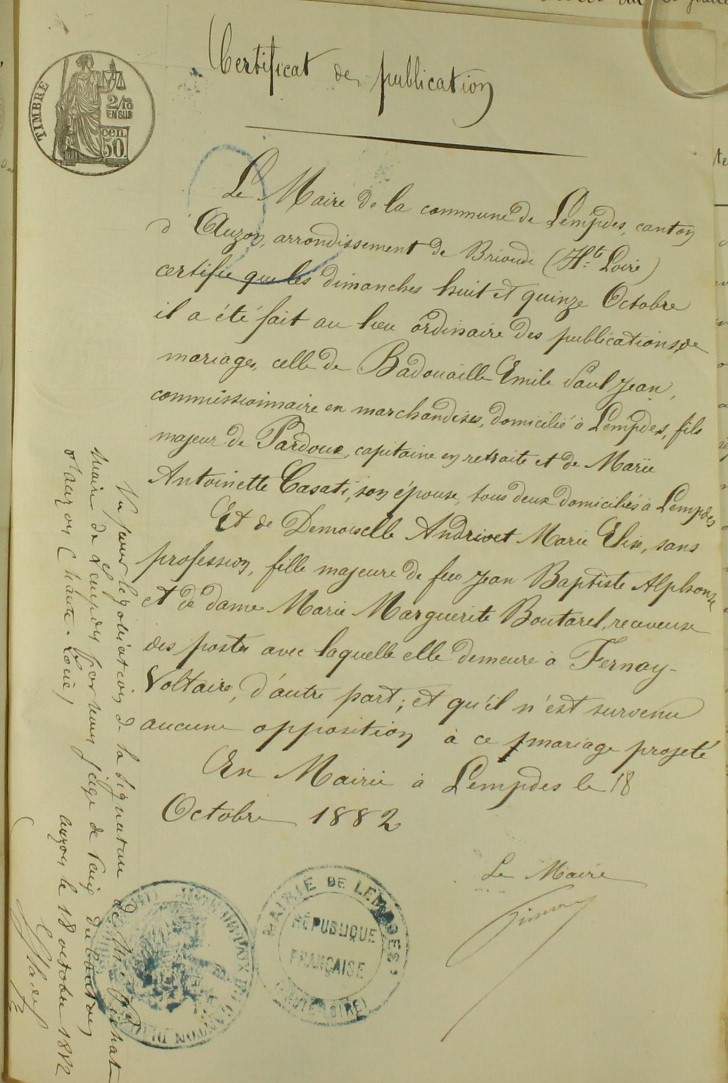 Certificat de publication
TIMBRE
2/10
EN SUS
50 CEN.
Le Maire de la commune de Lempdes, canton
d'Auzon, arrondissement de Brioude (Hte Loire)
certifie que les dimanches huit et quinze Octobre
il a été fait au lieu ordinaire des publications de
mariages, celle de Badouaille Emile Paul Jean,
commissionnaire en marchandises, domicilié à Lempdes, fils
majeur de Pardoux, capitaine en retraite et de Marie
Antoinette Casati, son épouse, tous deux domiciliés à Lempdes
Et de Demoiselle Andrivet Marie Elise, sans
profession, fille majeure de feu Jean Baptiste Alphonse
et de dame Marie Marguerite Boutarel, receveuse
des postes avec laquelle elle demeure à Fernay-
Voltaire, d'autre part; et qu'il n'est survenu
aucune opposition à ce mariage projeté
En Mairie à Lempdes le 18
Octobre 1882
Le Maire
MAIRIE DE LEMPDES
RÉPUBLIQUE
FRANÇAISE
(HAUTE-LOIRE)
Vu pour légalisation de la signature de
maire de Lempdes par nous juge de Paix du canton
d'auzon (haute-Loire)
auzon le 18 octobre 1882